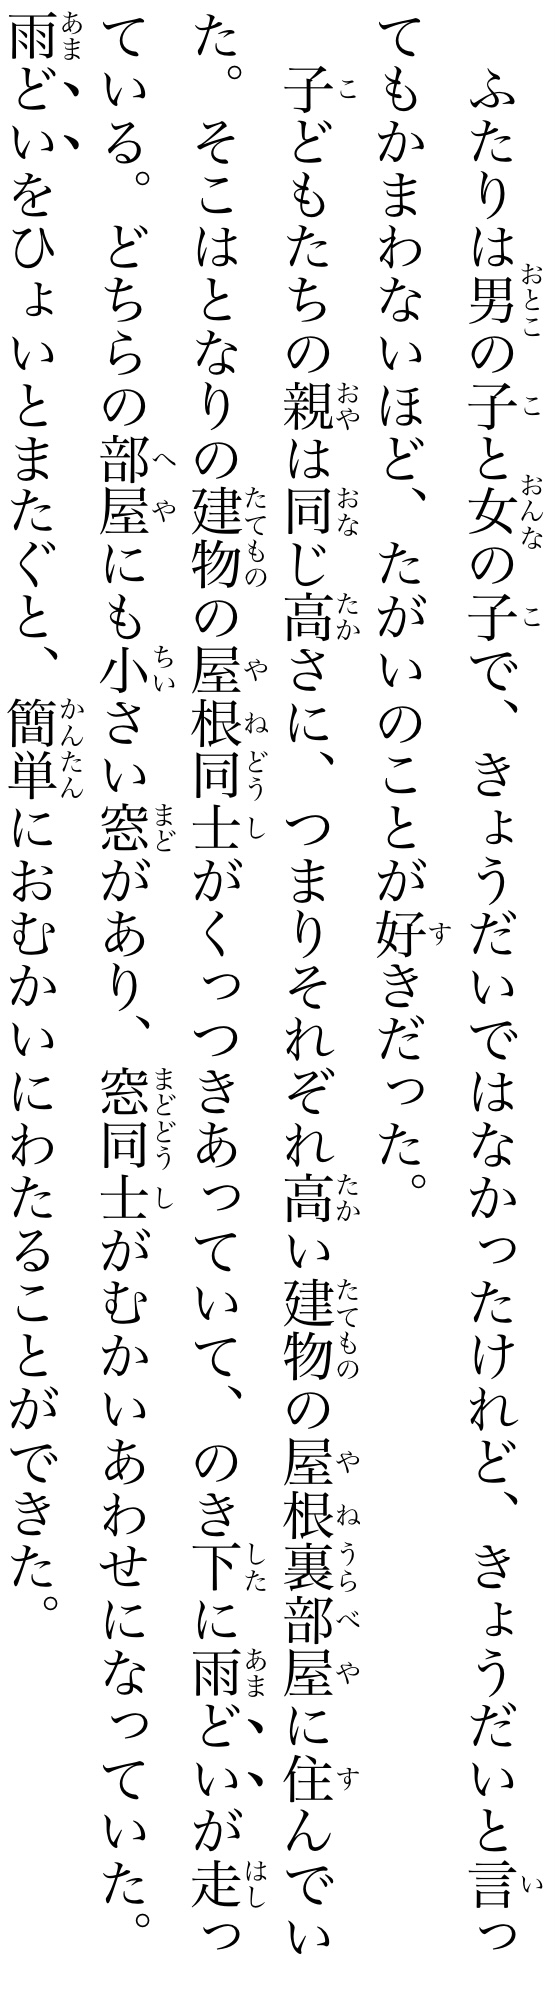 ふたりは男の子と女の子で、きょうだいではなかったけれど、きょうだいと言っ
てもかまわないほど、たがいのことが好きだった。
子どもたちの親は同じ高さに、つまりそれぞれ高い建物の屋根裏部屋に住んでい
た。そこはとなりの建物の屋根同士がくっつきあっていて、のき下に雨どいが走っ
ている。どちらの部屋にも小さい窓があり、窓同士がむかいあわせになっていた。
雨どいをひょいとまたぐと、簡単におむかいにわたることができた。